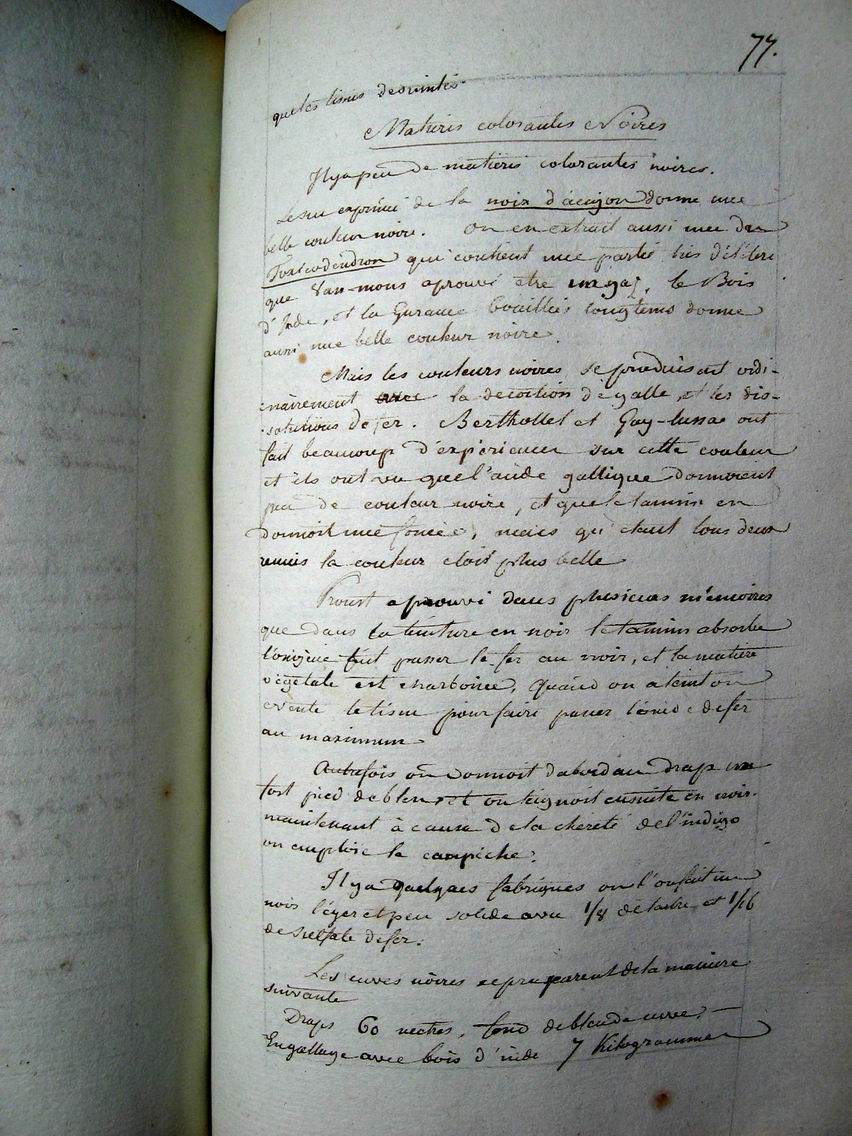 77.
que les tissus
Matieres colorantes Noires
Il y a peu de matieres colorantes noires.
Le suc exprimé de la noix d'acajou donne une
belle couleur noire. On en extrait aussi une du
Toxicodendron qui contient une partie très délétère
que Van-mons a prouvé etre le Bois
d'Inde, et la Garance bouillis longtems donne
aussi une belle couleur noire.
Mais les couleurs noires se produisent ordi-
nairement avec la decoction de galle et les dis-
solutions de fer. Berthollet et Gay-lussac ont
fait beaucoup d'experiences sur cette couleur
et ils ont vu que l'acide gallique donnoient
peu de couleur noire, et que le tannin en
donnoit une foncée, mais qu'etant tous deux
reunis la couleur etoit plus belle
Proust a prouvé dans plusieurs mémoires
que dans la teinture en noir le tannin absorbe
l'oxigène fait passer le fer au noir, et la matiere
végétale est charbonée, quand on a teint on
evente le tissu pour faire passer l'oxide de fer
au maximum
Autrefois on donnoit d'abord au Drap un
fort pied de bleu et on teignoit ensuite en noir.
maintenant à cause de la chèreté de l'indigo
on emploie le campêche.
Il y a quelques fabriques ou l'on fait un
noir léger et peu solide avec 1/8 de tartre et 1/16
de sulfate de fer.
Les cuves noires se préparent de la maniere
suivante
Draps 60 metres, fond de bleu de cuve,
Engallage avec bois d'inde 7 Kilogrammes